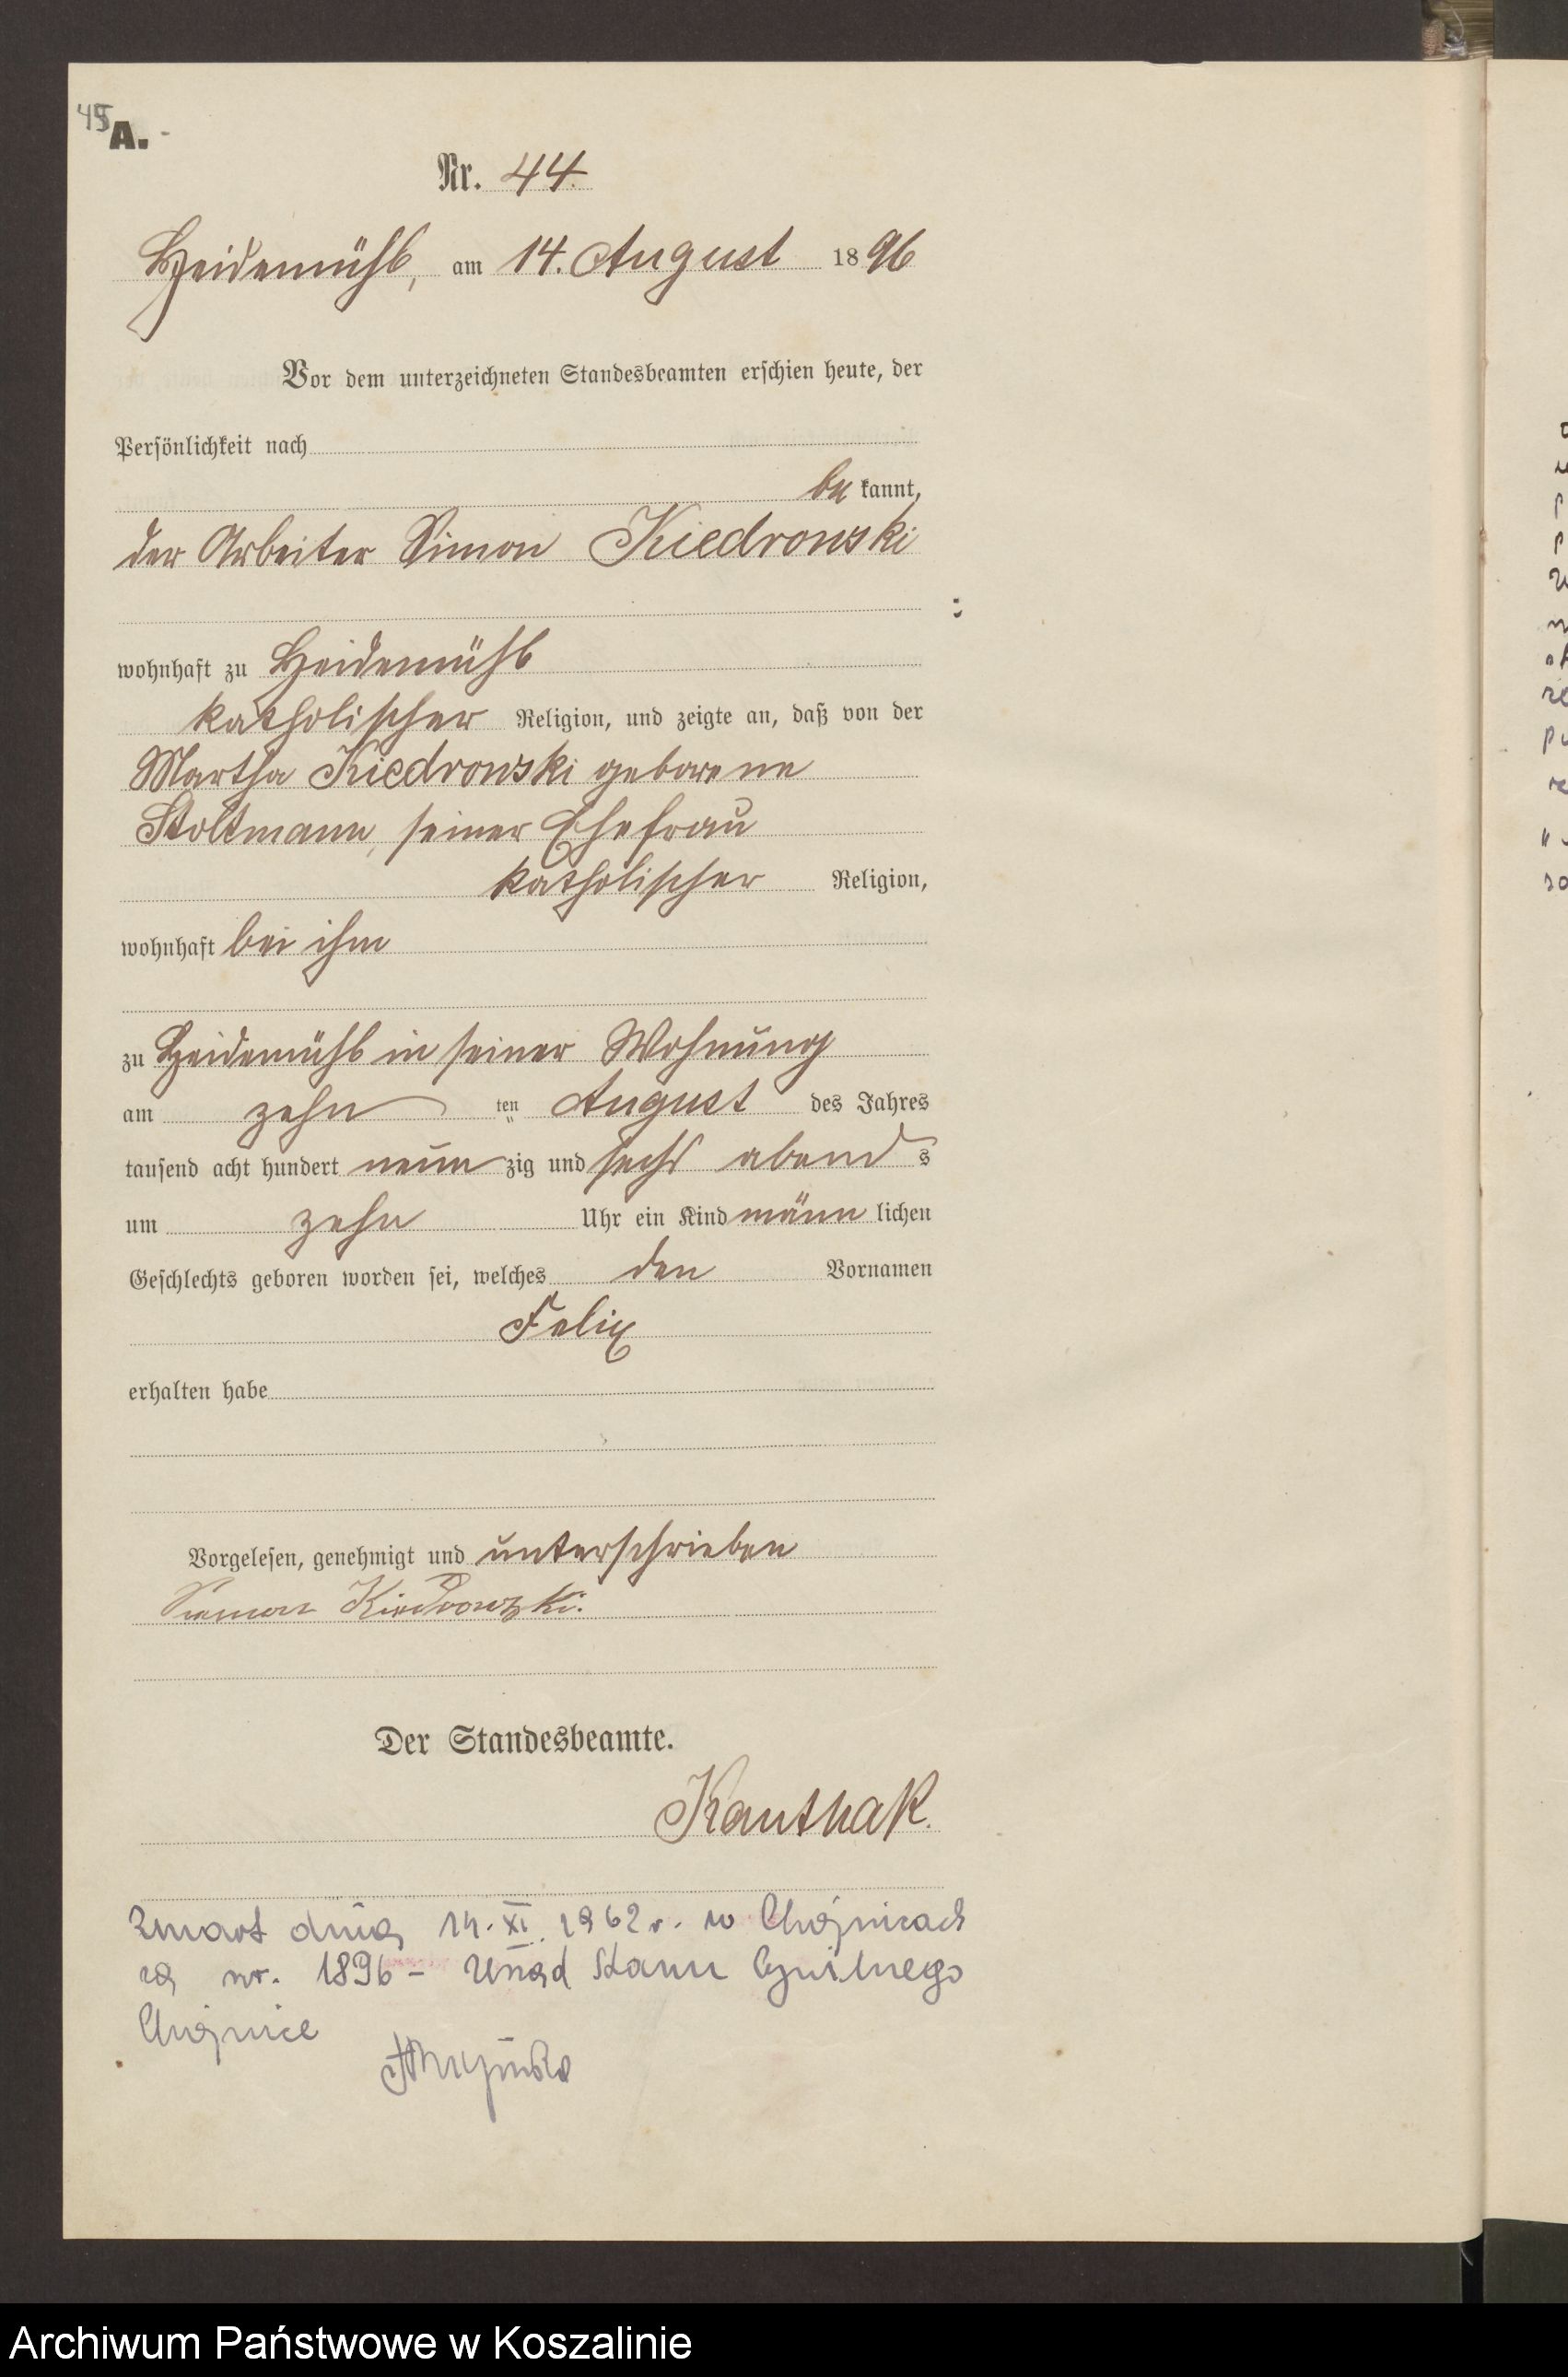 45
A. -
Nr. 44.
Heidemühl, am 14. August 1896
Vor dem unterzeichneten Standesbeamten erschien heute, der
Persönlichkeit nach
be kannt,
der Arbeiter Simon Kiedrowski
wohnhaft zu Heidemühl
katholischer Religion, und zeigte an, daß von der
Martha Kiedrowski geborene
Stoltmann, seiner Ehefrau
katholischer Religion,
wohnhaft bei ihm
zu Heidemühl in seiner Wohnung
am zehn ten August des Jahres
tausend acht hundert neun zig und sechs abend s
um zehn Uhr ein Kind männ lichen
Geschlechts geboren worden sei, welches den Vornamen
Felix
erhalten habe
Vorgelesen, genehmigt und unterschrieben
Simon Kiedrowski.
Der Standesbeamte.
Kanthak.
Zmarł dnia 14. XI. 1962 r. w Chojnicach
za nr. 1896 - Urząd Stanu Cywilnego
Chojnice
Archiwum Państwowe w Koszalinie